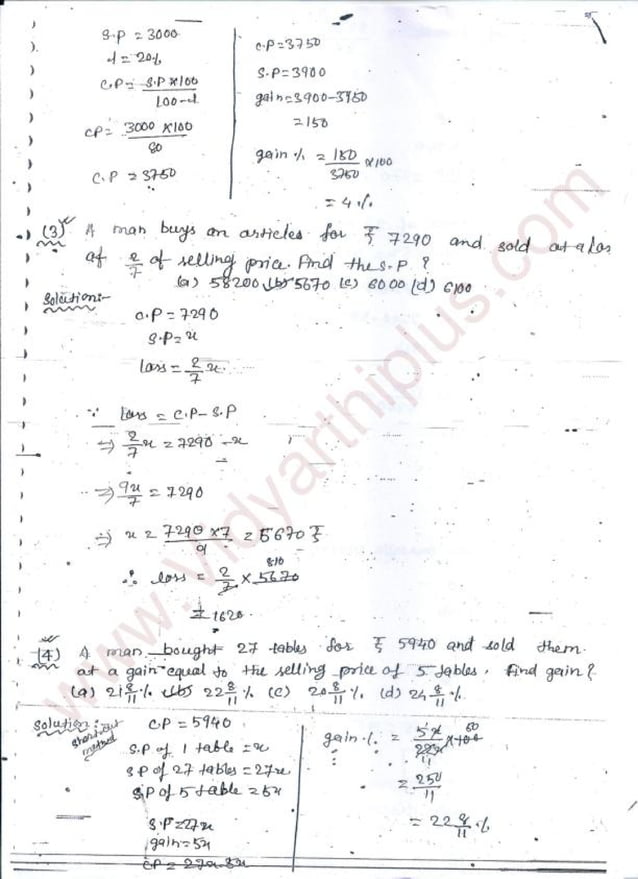 S.P = 3000
d = 20%
C.P = S.P × 100 / 100-d
CP = 3000 × 100 / 80
C.P = 3750
C.P = 3750
S.P = 3900
gain = 3900 - 3750
= 150
gain % = 150/3750 × 100
= 4 %
(3) A man buys an articles for ₹ 7290 and sold at a loss
of 2/7 of selling price. Find the S.P ?
(a) 58200 (b) 5670 (c) 6000 (d) 6100
Solution:-
C.P = 7290
S.P = x
loss = 2/7 x
∵ loss = C.P - S.P
⇒ 2/7 x = 7290 - x
⇒ 9x/7 = 7290
⇒ x = 7290 × 7 / 9 = 5670 ₹
∴ loss = 2/7 × 5670 810
= 1620
(4) A man bought 27 tables for ₹ 5940 and sold them
at a gain equal to the selling price of 5 tables. find gain ?
(a) 21 8/11 % (b) 22 8/11 % (c) 20 8/11 % (d) 24 8/11 %
Solution:
shortcut method
C.P = 5940
S.P of 1 table = x
S.P of 27 tables = 27x
S.P of 5 table = 5x
S.P = 27x
gain = 5x
CP = 27x - 5x
gain % = 5x/22x × 100 50 11
= 250/11
= 22 8/11 %
www.vidyarthiplus.com